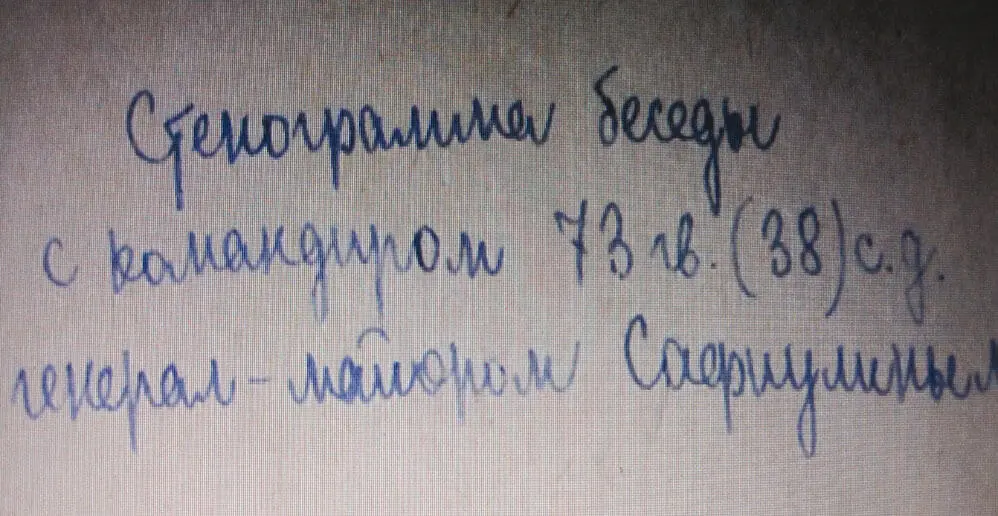 Стенограмма беседы
с командиром 73 гв. (38) с.д.
генерал-майором Сафиулиным